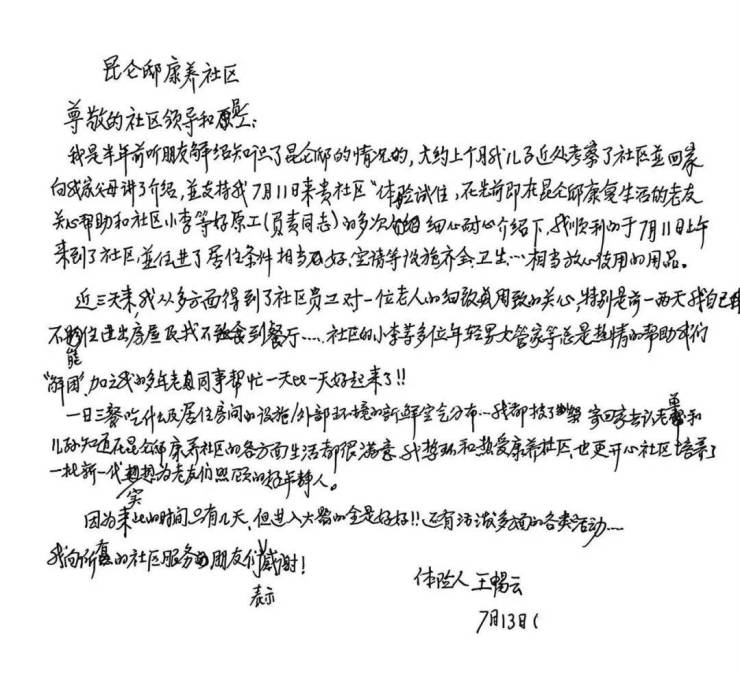 昆仑邸康养社区
尊敬的社区领导和员工：
我是半年前听朋友解绍知识了昆仑邸的情况的，大约上个月我儿子近处考察了社区並回家
向我家父母讲了介绍，並支持我7月11日来贵社区“体验试住，在先前即在昆仑邸康复生活的老友
关心帮助和社区小李等好原工（负责同志）的多次细心耐心介绍下，我顺利的于7月11日上午
来到了社区，並住进了居住条件相当好，空请等设施齐会、卫生…相当放心使用的用品。
近三天来，我从多方面得到了社区员工对一位老人的细致周致的关心，特别是前一两天我自己
不能住进出房屋及找不到餐厅……，社区的小李等多位年轻男大管家等总是热情的帮助我们
“解困”，加之我的多年老同事帮忙一天比一天好起来了!!
一日三餐吃什么及居住房间的设施/外部环境的新鲜空气分布…我都技了寄回家去让老和
儿孙知道在昆仑邸康养社区的各方面生活都很满意，我赞环和热爱康养社区，也更开心社区培养了
一批新一代想为老友们照顾的好年静人。
因为来此的时间实只有几天，但进入大器的全是好好!!还有活泼多面的各类活动……
我向所有的社区服务的朋友们表示感谢!
体险人 王鴨云
7月13日(